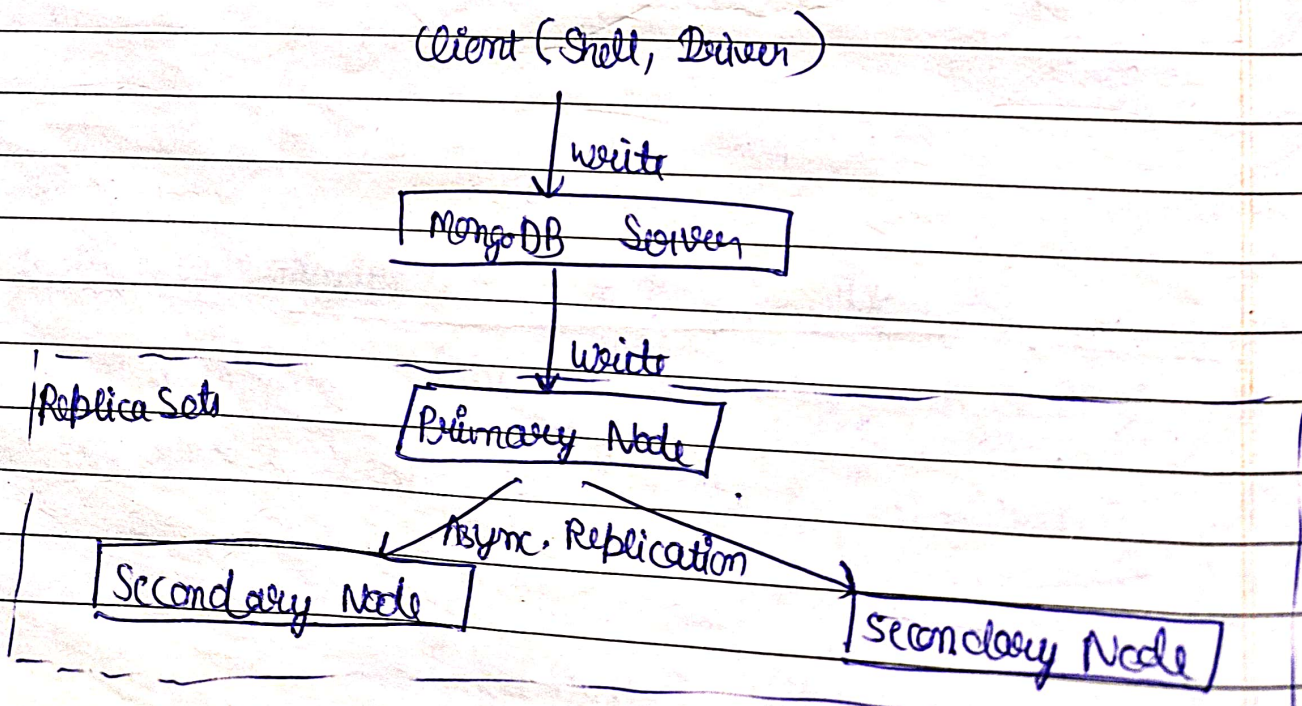 Client (Shell, Driver)
write
MongoDB Server
write
Replica Sets
Primary Node
Async. Replication
Secondary Node
Secondary Node